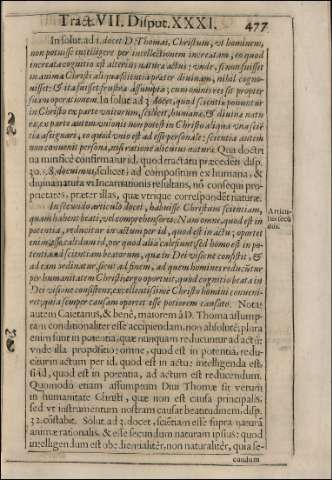 Tract. VII. Disput. XXXI. 477
In solut. ad 1. docet D. Thomas, Christum, vt hominem,
non potuisse intelligere per intellectionem increatam, eo quod
increata cognitio est alterius naturæ actus: vnde, si non fuisset
in anima Christi aliqua scientia præter diuinam, nihil cogno-
uisset: & ita fuisset frustra assumpta; cum omnis res sit propter
suam operationem. In solut. ad 2. docet, quod scientia ponuntur in
Christo ex parte naturarum, scilicet, humanæ, & diuinæ natu
ræ,ex parte autem vnionis non potest in Christo aliqua vna sciē
tia assignari, eo quod vnio est ad esse personale: scientia autem
non conuenit personæ, nisi ratione alicuius naturæ. Qua doctri
na mirificè confirmatur id, quod tractatu præcedēti disp.
30. s. 8. docuimus, scilicet; ad compositum ex humana, &
diuina natura vi Incarnationis resultans, nō consequi pro-
prietates, præter illas, quæ vtrique correspondēt naturæ.
In secundo articulo docet, habuisse Christum scientiam,
quam habent beati, vel comprehensores. Nam omne, quod est in
potentia, reducitur in actum per id, quod est in actu; oportet
enim esse calidum id, per quod alia calefiunt: sed homo est in po-
tentia ad scientiam beatorum, quæ in Dei visione consistit; &
ad eam ordinatur, sicut ad finem, ad quem homines reducūtur
per humanitatem Christi: ergo oportuit, quod cognitio beata in
Dei visione consistens, excellentissimè Christo homini conueni-
ret; quia semper causam oportet esse potiorem causato. Notat
autem Caietanus, & benè, maiorem à D. Thoma assump-
tam conditionaliter esse accipiendam, non absolutè; plura
enim sunt in potentia, quæ nunquam reducuntur ad actū:
vnde illa propositio; omne, quod est in potentia, redu-
citur in actum per id, quod est in actu: intelligenda est,
si id, quod est in potentia, ad actum est reducendum.
Quomodo etiam assumptum Diui Thomæ sit verum
in humanitate Christi, quæ non est causa principalis,
sed vt instrumentum nostram causat beatitudinem, disp.
32. cōstabit. Solut. ad 3. docet, sciētiam esse supra naturā
animæ rationalis, & esse secundum naturam ipsius: quod
intelligendum est obedientialiter, non naturaliter, quia se-
cundum
Articu-
lus secū
dus.